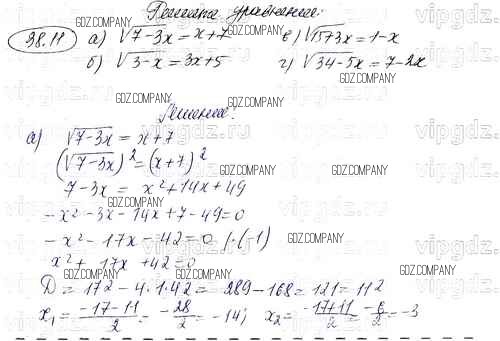 Решите уравнение:
38.11 а) √7-3x = x+7 в) √15+3x = 1-x
б) √3-x = 3x+5 г) √34-5x = 7-2x
Решение:
а) √7-3x = x+7
(√7-3x)² = (x+7)²
7-3x = x²+14x+49
-x²-3x-14x+7-49=0
-x²-17x-42=0 /·(-1)
x²+17x+42=0
D = 17²-4·1·42 = 289-168=121=11²
x₁ = -17-11/2 = -28/2 = -14; x₂ = -17+11/2 = -6/2 = -3
GDZ.COMPANY
vipgdz.ru